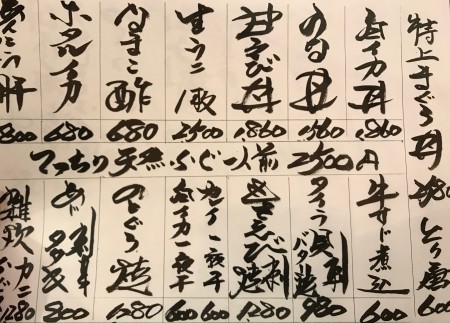 特上まぐろ丼
赤イカ丼 1,860
のな丼 1,560
甘えび丼 1,860
生ウニ 1枚 2,500
なまこ酢 680
ホタルイカ 680
肝 800
てっちり 天然ふぐ一人前 2500円
とり唐 600
牛すじ煮込 600
バター焼 980
甘えび 刺 1,280
イカ一夜干 600
赤イカ一夜干 600
のどぐろ 焼 1280
あじ 刺身 タタキ 800
雑炊 カニ ふぐ 1280